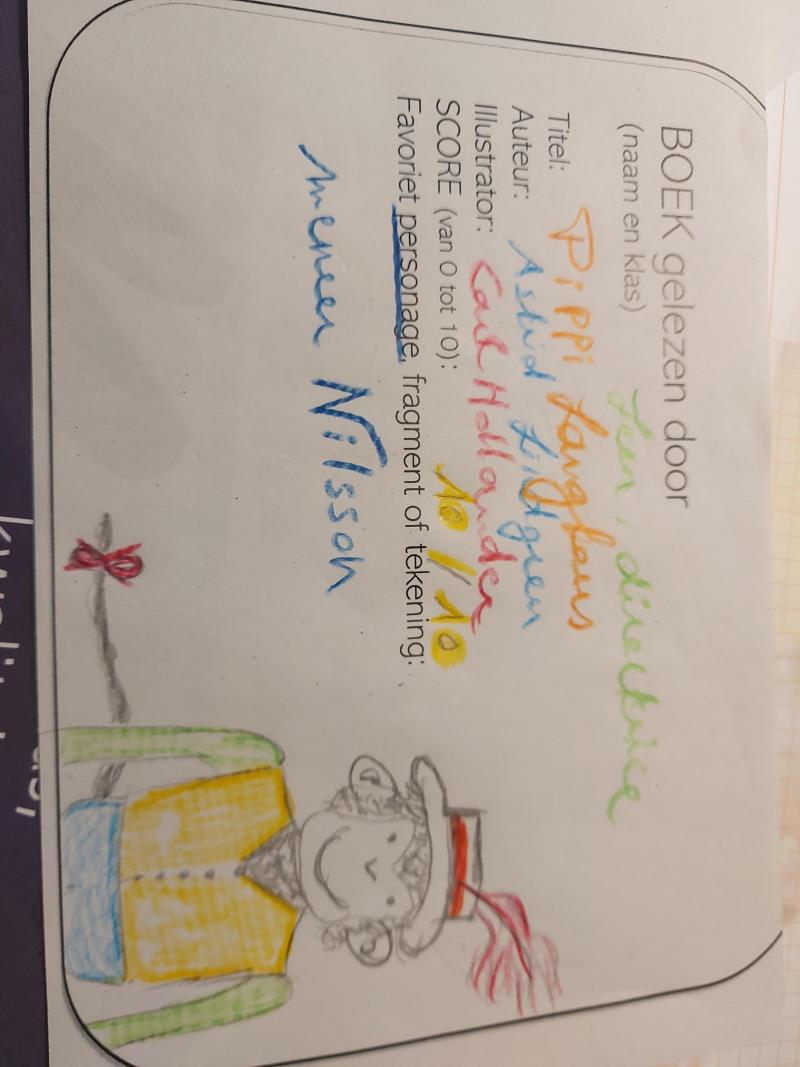 BOEK gelezen door
(naam en klas) Leen, directrice
Titel: Pippi Langkous
Auteur: Astrid Lindgren
Illustrator: Carl Hollander
SCORE (van 0 tot 10): 10/10
Favoriet personage, fragment of tekening:
meneer Nilsson